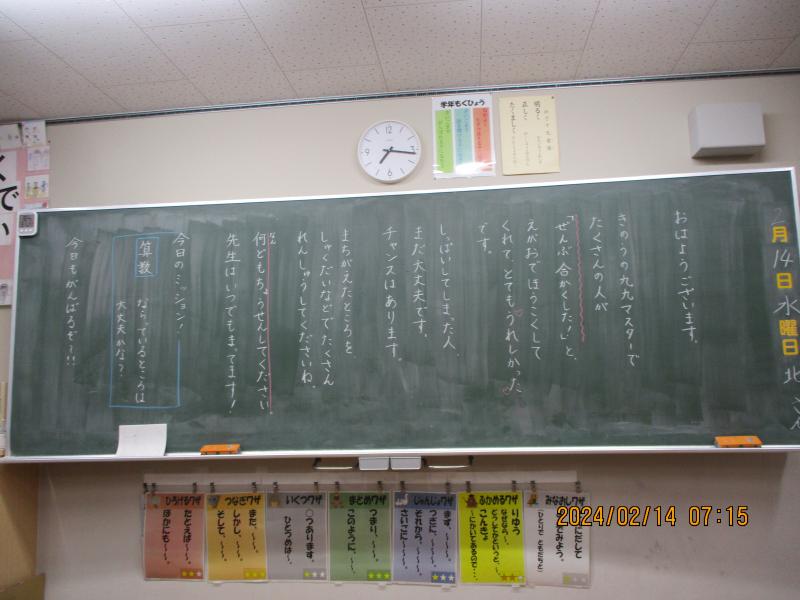 2月14日 水曜日
北
おはようございます。
きのうの九九マスターで
たくさんの人が
「ぜんぶ合かくした!」と、
えがおでほうこくして
くれて、とてもうれしかった
です。
しっぱいしてしまった人、
まだ大丈夫です。
チャンスはあります。
まちがえたところを、
しゅくだいなどでたくさん
れんしゅうしてくださいね。
何どもちょうせんしてください。
なん
先生はいつでもまってます!
今日のミッション!
算数
ならっているところは
大丈夫かな?
今日もがんばるぞー!!
学年もくひょう
明るく
正しく
たくましく
12
3
6
9
くでい
ひろげるワザ
たとえば〜〜。
ほかにも〜〜。
つなぎワザ
また、〜〜。
しかし、〜〜。
そして、〜〜。
いくつワザ
○つあります。
ひとつめは〜。
まとめワザ
つまり、〜〜。
このように、〜〜。
じゅんじょワザ
まず、〜〜。
つぎに、〜〜。
それから、〜〜。
さいごに、〜〜。
ふかめるワザ
りゆう
なぜなら〜。
どうしてかというと、〜。
こんきょ
〜にかいてあるので・・・
みなおしワザ
2024/02/14 07:15